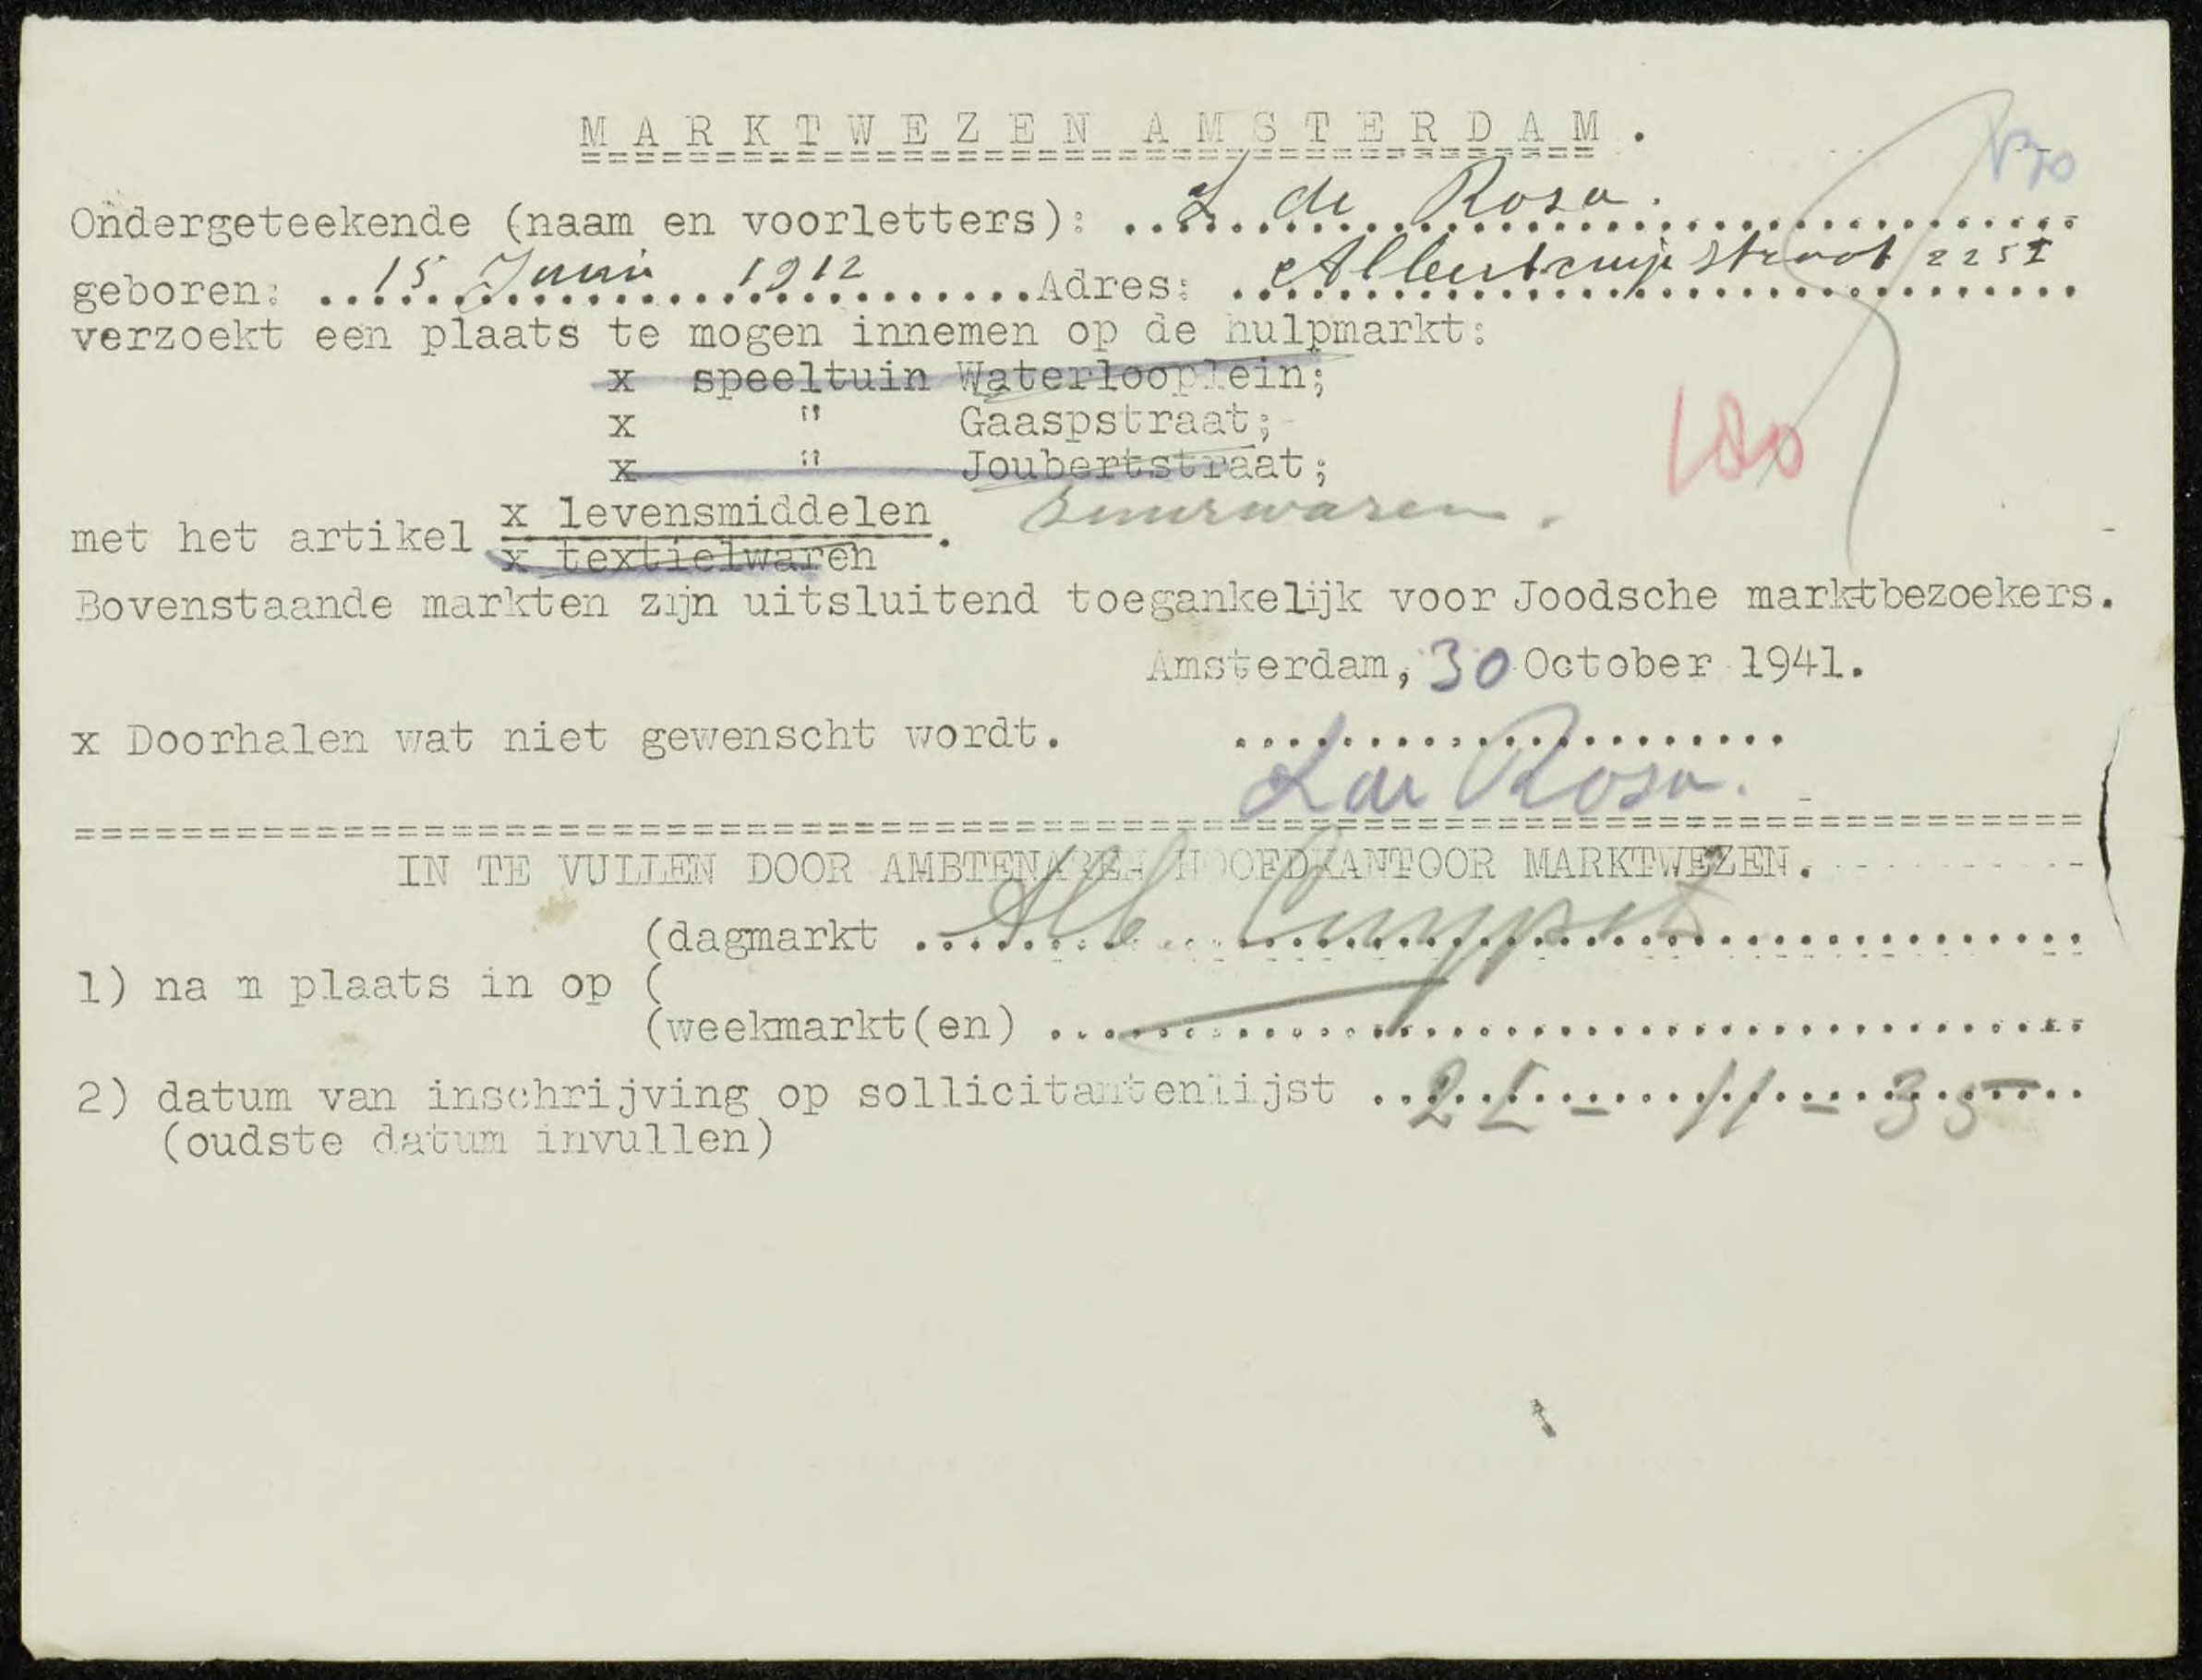 MARKTWEZEN AMSTERDAM.
130
Ondergeteekende (naam en voorletters): L de Rosa.
geboren: 15 Juni 1912 Adres: Albertcuijpstraat 225 I
verzoekt een plaats te mogen innemen op de hulpmarkt:
x speeltuin Waterlooplein;
x " Gaaspstraat;
x " Joubertstraat;
180
x levensmiddelen zuurwaren.
met het artikel .
x textielwaren
Bovenstaande markten zijn uitsluitend toegankelijk voor Joodsche marktbezoekers.
Amsterdam, 30 October 1941.
x Doorhalen wat niet gewenscht wordt.
L de Rosa.
IN TE VULLEN DOOR AMBTENAREN HOOFDKANTOOR MARKTWEZEN.
(dagmarkt Alb Cuypst
1) na m plaats in op (
(weekmarkt(en)
2) datum van inschrijving op sollicitantenlijst 25-11-35
(oudste datum invullen)